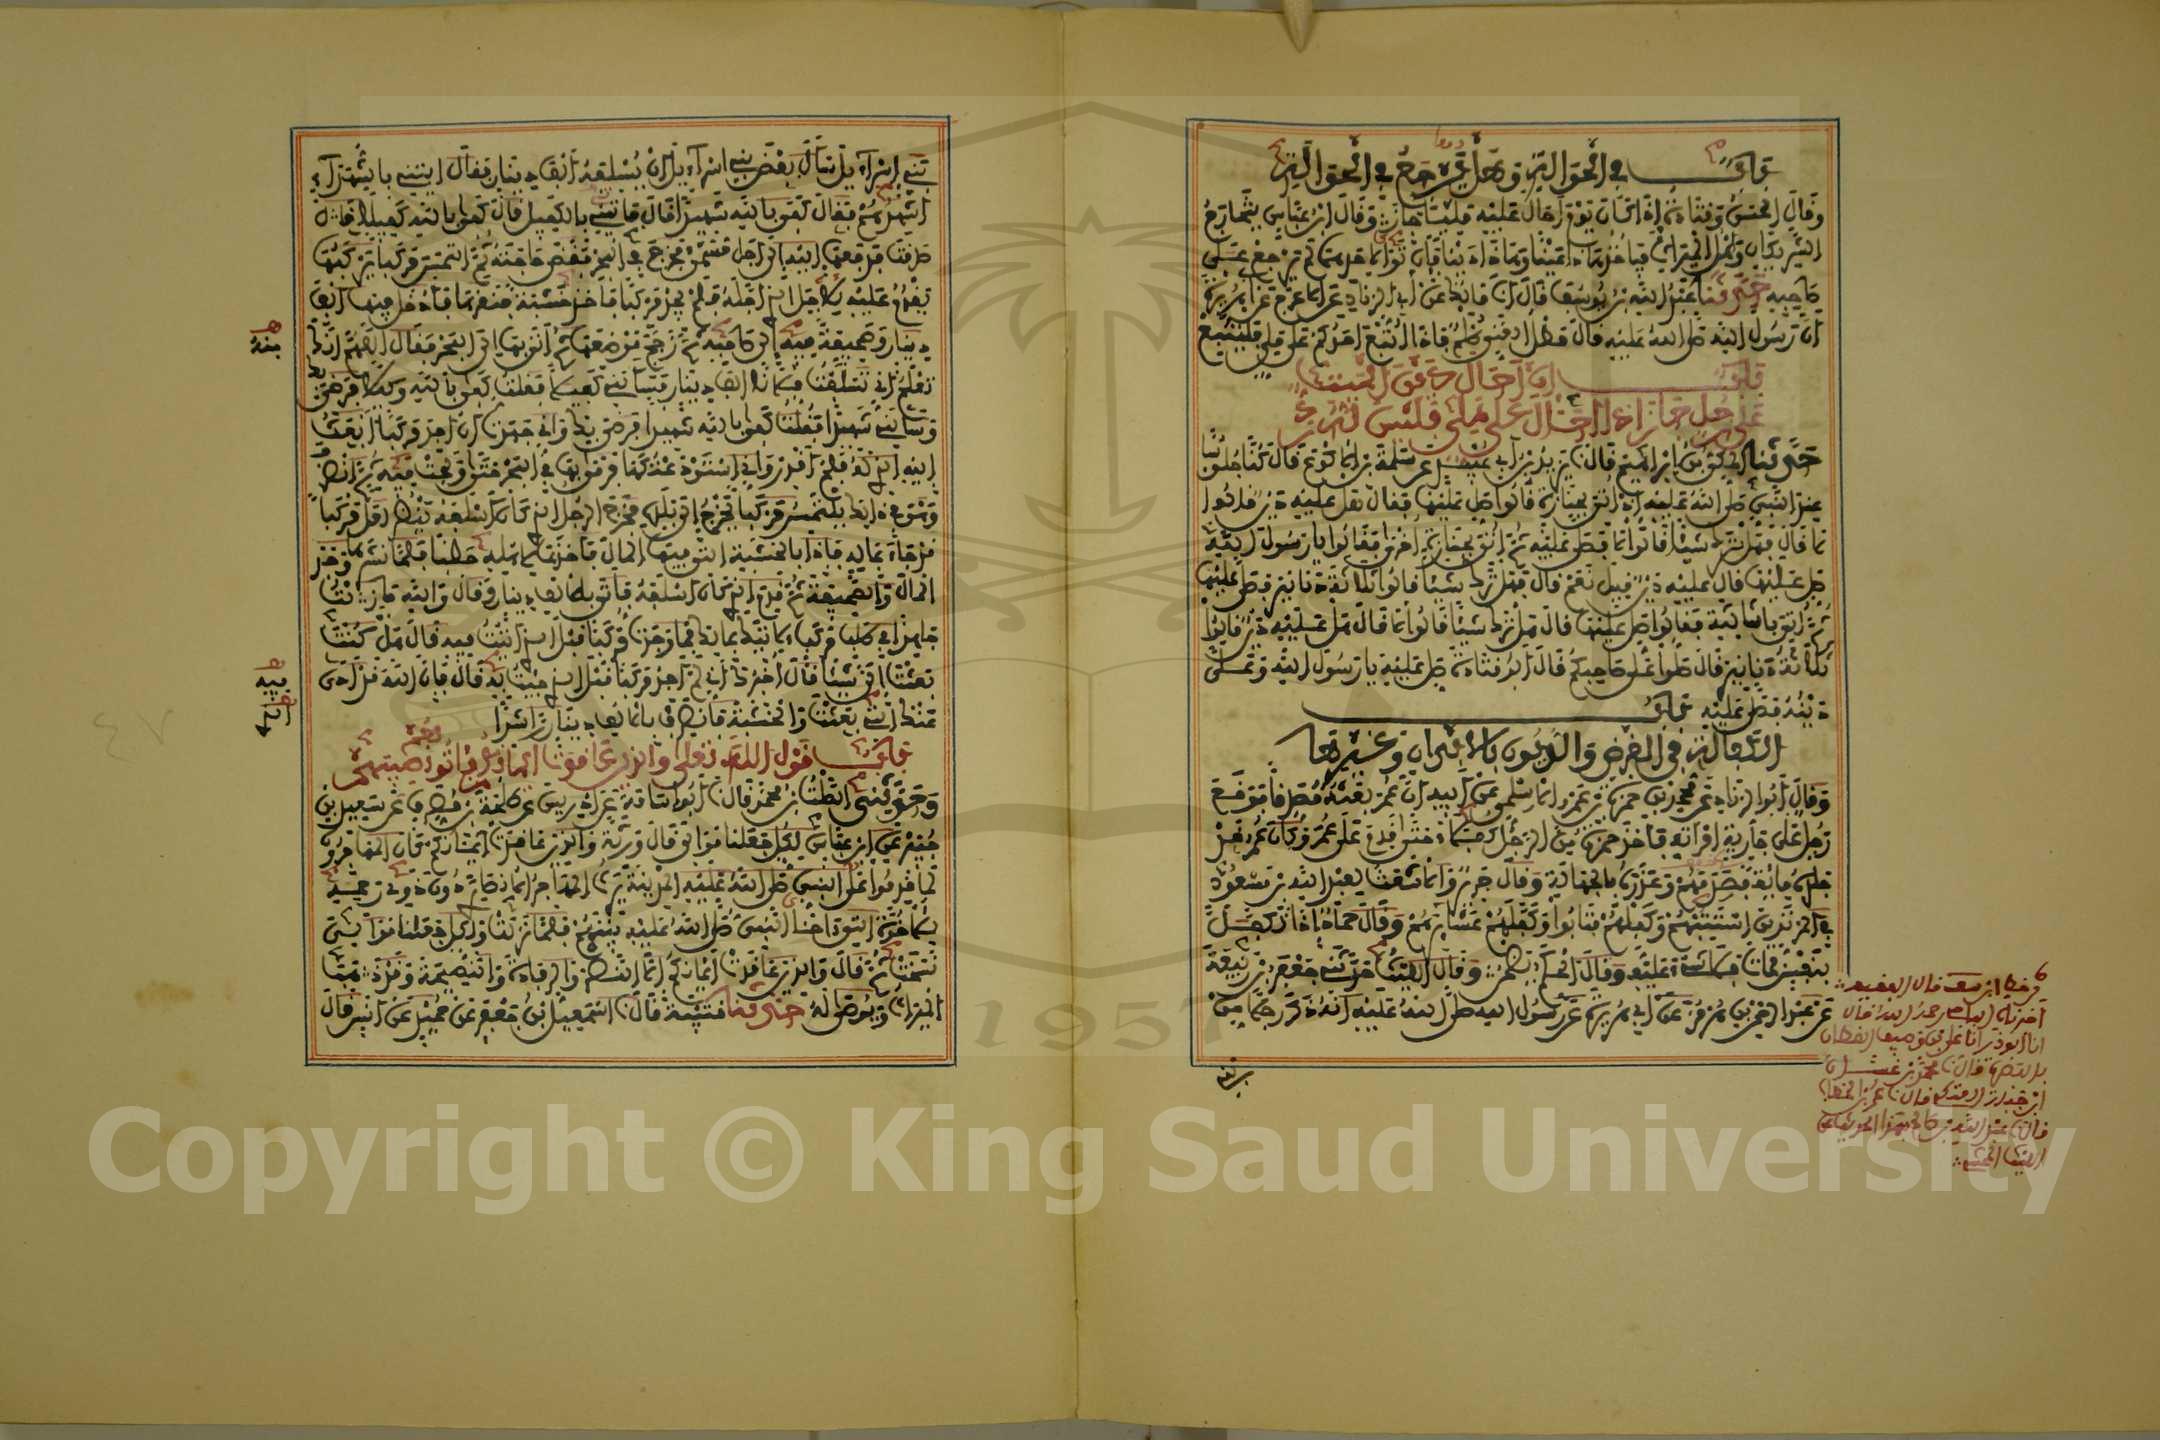 باب في الحوالة وهل يرجع في الحوالة
وقال الحسن وقتادة إذا كان يوم أحال عليه مليا جاز وقال ابن عباس يتخارج
الشريكان وأهل الميراث فياخذ هذا عينا وهذا دينا فإن توي لأحدهما لم يرجع على
صاحبه حدثنا عبد الله بن يوسف قال أنا مالك عن أبي الزناد عن الأعرج عن أبي هريرة
أن رسول الله صلى الله عليه قال مطل الغني ظلم فإذا أتبع أحدكم على ملي فليتبع
باب إن أحال دين الميت
على رجل جاز وإذا أحال على ملي فليس له رد
حدثنا المكي بن إبراهيم قال نا يزيد بن أبي عبيد عن سلمة بن الأكوع قال كنا جلوسا
عند النبي صلى الله عليه إذ أتي بجنازة قالوا صل عليها فقال هل عليه دين قالوا
لا قال فهل ترك شيئا قالوا لا فصلى عليه ثم أتي بجنازة أخرى فقالوا يا رسول الله
صل عليها قال عليه دين قيل نعم قال فهل ترك شيئا قالوا ثلاثة دنانير فصلى عليها
ثم أتي بالثالثة فقالوا صل عليها قال هل ترك شيئا قالوا لا قال هل عليه دين قالوا
ثلاثة دنانير قال صلوا على صاحبكم قال أبو قتادة صل عليه يا رسول الله وعلي
دينه فصلى عليه باب
الكفالة في القرض والديون بالأبدان وغيرها
وقال أبو الزناد عن محمد بن حمزة بن عمرو الأسلمي عن أبيه أن عمر بعثه مصدقا فوقع
رجل على جارية امرأته فأخذ حمزة من الرجل كفلاء حتى قدم على عمر وكان عمر قد
جلده مائة فصدقهم وعذره بالجهالة وقال جرير والأشعث لعبد الله بن مسعود
في المرتدين استتبهم وكفلهم فتابوا وكفلهم عشائرهم وقال حماد إذا تكفل
بنفس فمات فلا شيء عليه وقال الحكم يضمن وقال الليث حدثني جعفر بن ربيعة
عن عبد الرحمن بن هرمز عن أبي هريرة عن رسول الله صلى الله عليه أنه ذكر رجلا من
بني إسرائيل سأل بعض بني إسرائيل أن يسلفه ألف دينار فقال ائتني بالشهداء
أشهدهم فقال كفى بالله شهيدا قال فأتني بالكفيل قال كفى بالله كفيلا قال
صدقت فدفعها إليه إلى أجل مسمى فخرج في البحر فقضى حاجته ثم التمس مركبا يركبها
يقدم عليه للأجل الذي أجله فلم يجد مركبا فأخذ خشبة فنقرها فأدخل فيها ألف
دينار وصحيفة منه إلى صاحبه ثم زجج موضعها ثم أتى بها إلى البحر فقال اللهم إنك
تعلم أني تسلفت فلانا ألف دينار فسألني كفيلا فقلت كفى بالله وكيلا فرضي بك
وسألني شهيدا فقلت كفى بالله شهيدا فرضي بك وإني جهدت أن أجد مركبا أبعث
إليه الذي له فلم أقدر وإني استودعتكها فرمى بها في البحر حتى ولجت فيه ثم انصرف
وهو في ذلك يلتمس مركبا يخرج إلى بلده فخرج الرجل الذي كان أسلفه ينظر لعل مركبا
قد جاء بماله فإذا بالخشبة التي فيها المال فأخذها لأهله حطبا فلما نشرها وجد
المال والصحيفة ثم قدم الذي كان أسلفه فأتى بالألف دينار وقال والله ما زلت
جاهدا في طلب مركب لآتيك بمالك فما وجدت مركبا قبل الذي أتيت فيه قال هل كنت
بعثت إلي شيئا قال أخبرك أني لم أجد مركبا قبل الذي جيت به قال فإن الله قد أدى
عنك الذي بعثت والخشبة فانصرف بالألف دينار راشدا
باب قول الله تعلى والذين عاقدت أيمانكم فآتوهم نصيبهم
وحدثني الصلت بن محمد قال نا أبو أسامة عن إدريس عن طلحة بن مصرف عن سعيد بن
جبير عن ابن عباس لكل جعلنا موالي قال ورثة والذين عاقدت أيمانكم كان المهاجرون
لما قدموا على النبي صلى الله عليه المدينة يرث المهاجر الأنصاري دون ذوي رحمه
للأخوة التي آخى النبي صلى الله عليه بينهم فلما نزلت ولكل جعلنا موالي
نسخت ثم قال والذين عاقدت أيمانكم إلا النصر والرفادة والنصيحة وقد ذهب
الميراث ويوصى له حدثنا قتيبة قال نا إسمعيل بن جعفر عن حميد عن أنس قال
منه
فيه
بني
قال الفقيه
Copyright © King Saud University
1957